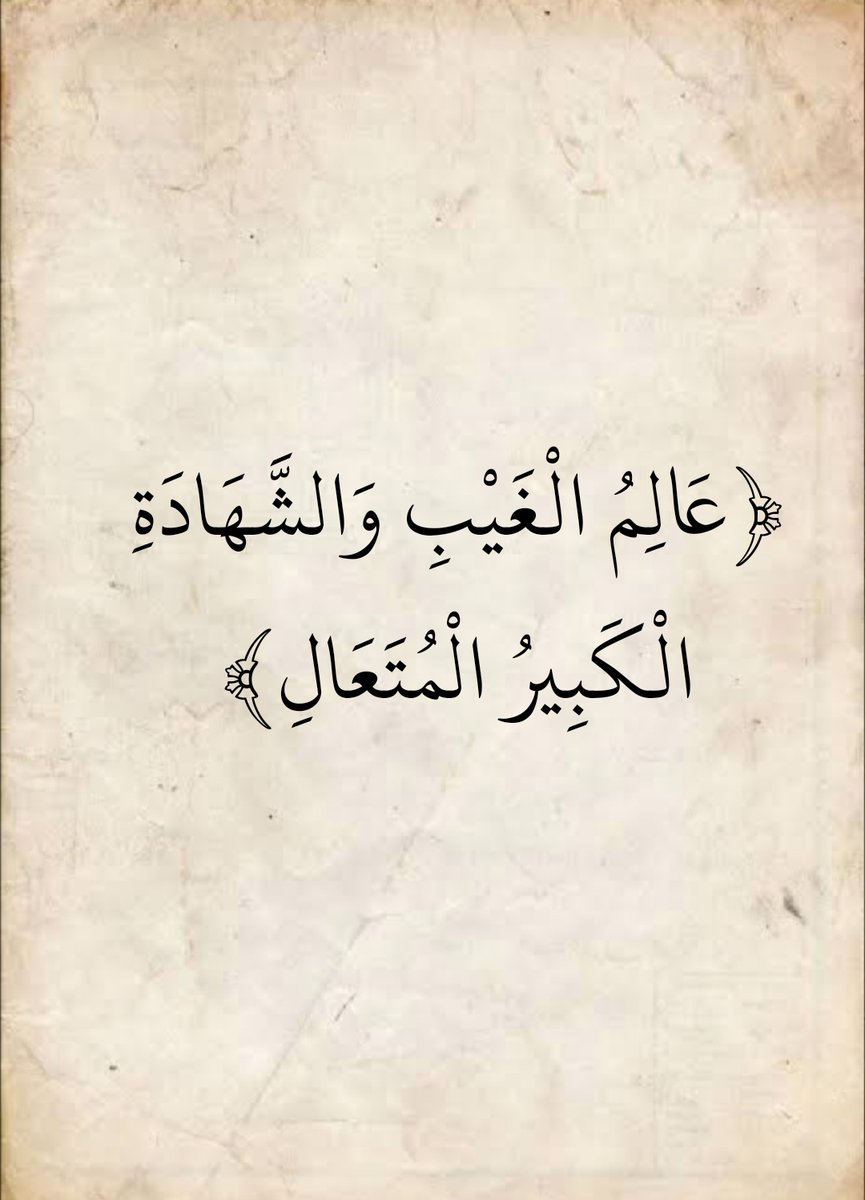 ﴿عَالِمُ الْغَيْبِ وَالشَّهَادَةِ
الْكَبِيرُ الْمُتَعَالِ﴾